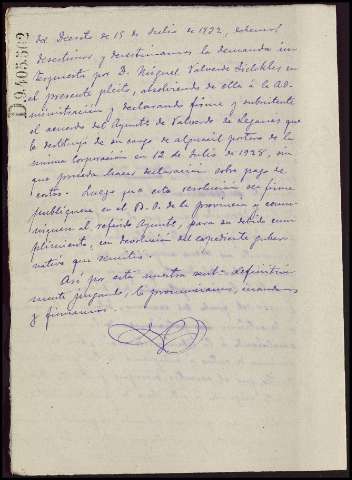 D9,405,502
del Decreto de 15 de Julio de 1892, debemos
desestimar y desestimamos la demanda in-
terpuesta por D. Miguel Valverde en
el presente pleito, absolviendo de ella á la Ad-
ministración, y declarando firme y subsistente
el acuerdo del Ayunto de Valverde de Leganes que
le destituyó de su cargo de alguacil portero de la
misma Corporación en 12 de Julio de 1928, sin
que proceda hacer declaración sobre pago de
costas. Luego que esta resolución sea firme
publíquese en el B. O. de la provincia y comu-
níquese al referido Ayunto, para su debido cum-
plimiento, con devolución del expediente guber-
nativo que remitió.
Así por esta nuestra sent. definitiva-
mente juzgando, lo pronunciamos, mandamos
y firmamos.